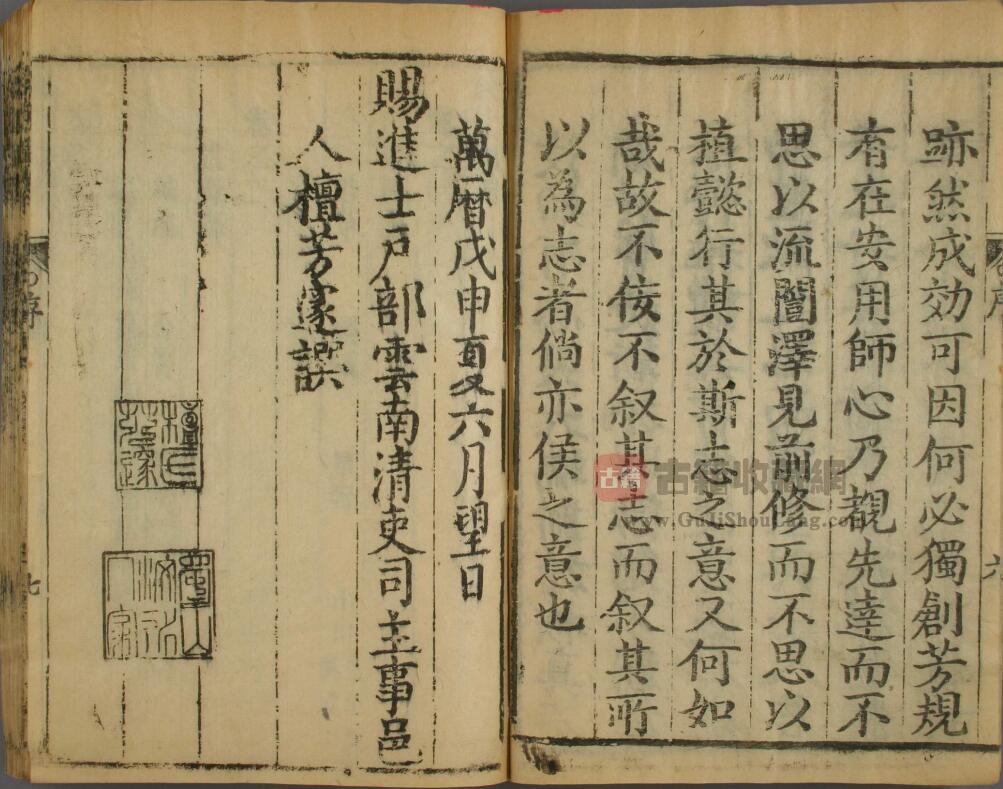 跡然成効可因何必獨創芳規
有在安用師心乃覩先達而不
思以流闓澤見前修而不思以
植懿行其於斯志之意又何如
哉故不佞不叙其志而叙其所
以為志者倘亦侯之意也
萬曆戊申夏六月望日
賜進士戶部雲南清吏司主事邑
人檀芳遂譔
序
六
七
古籍收藏網
www.GuJiShouCang.com